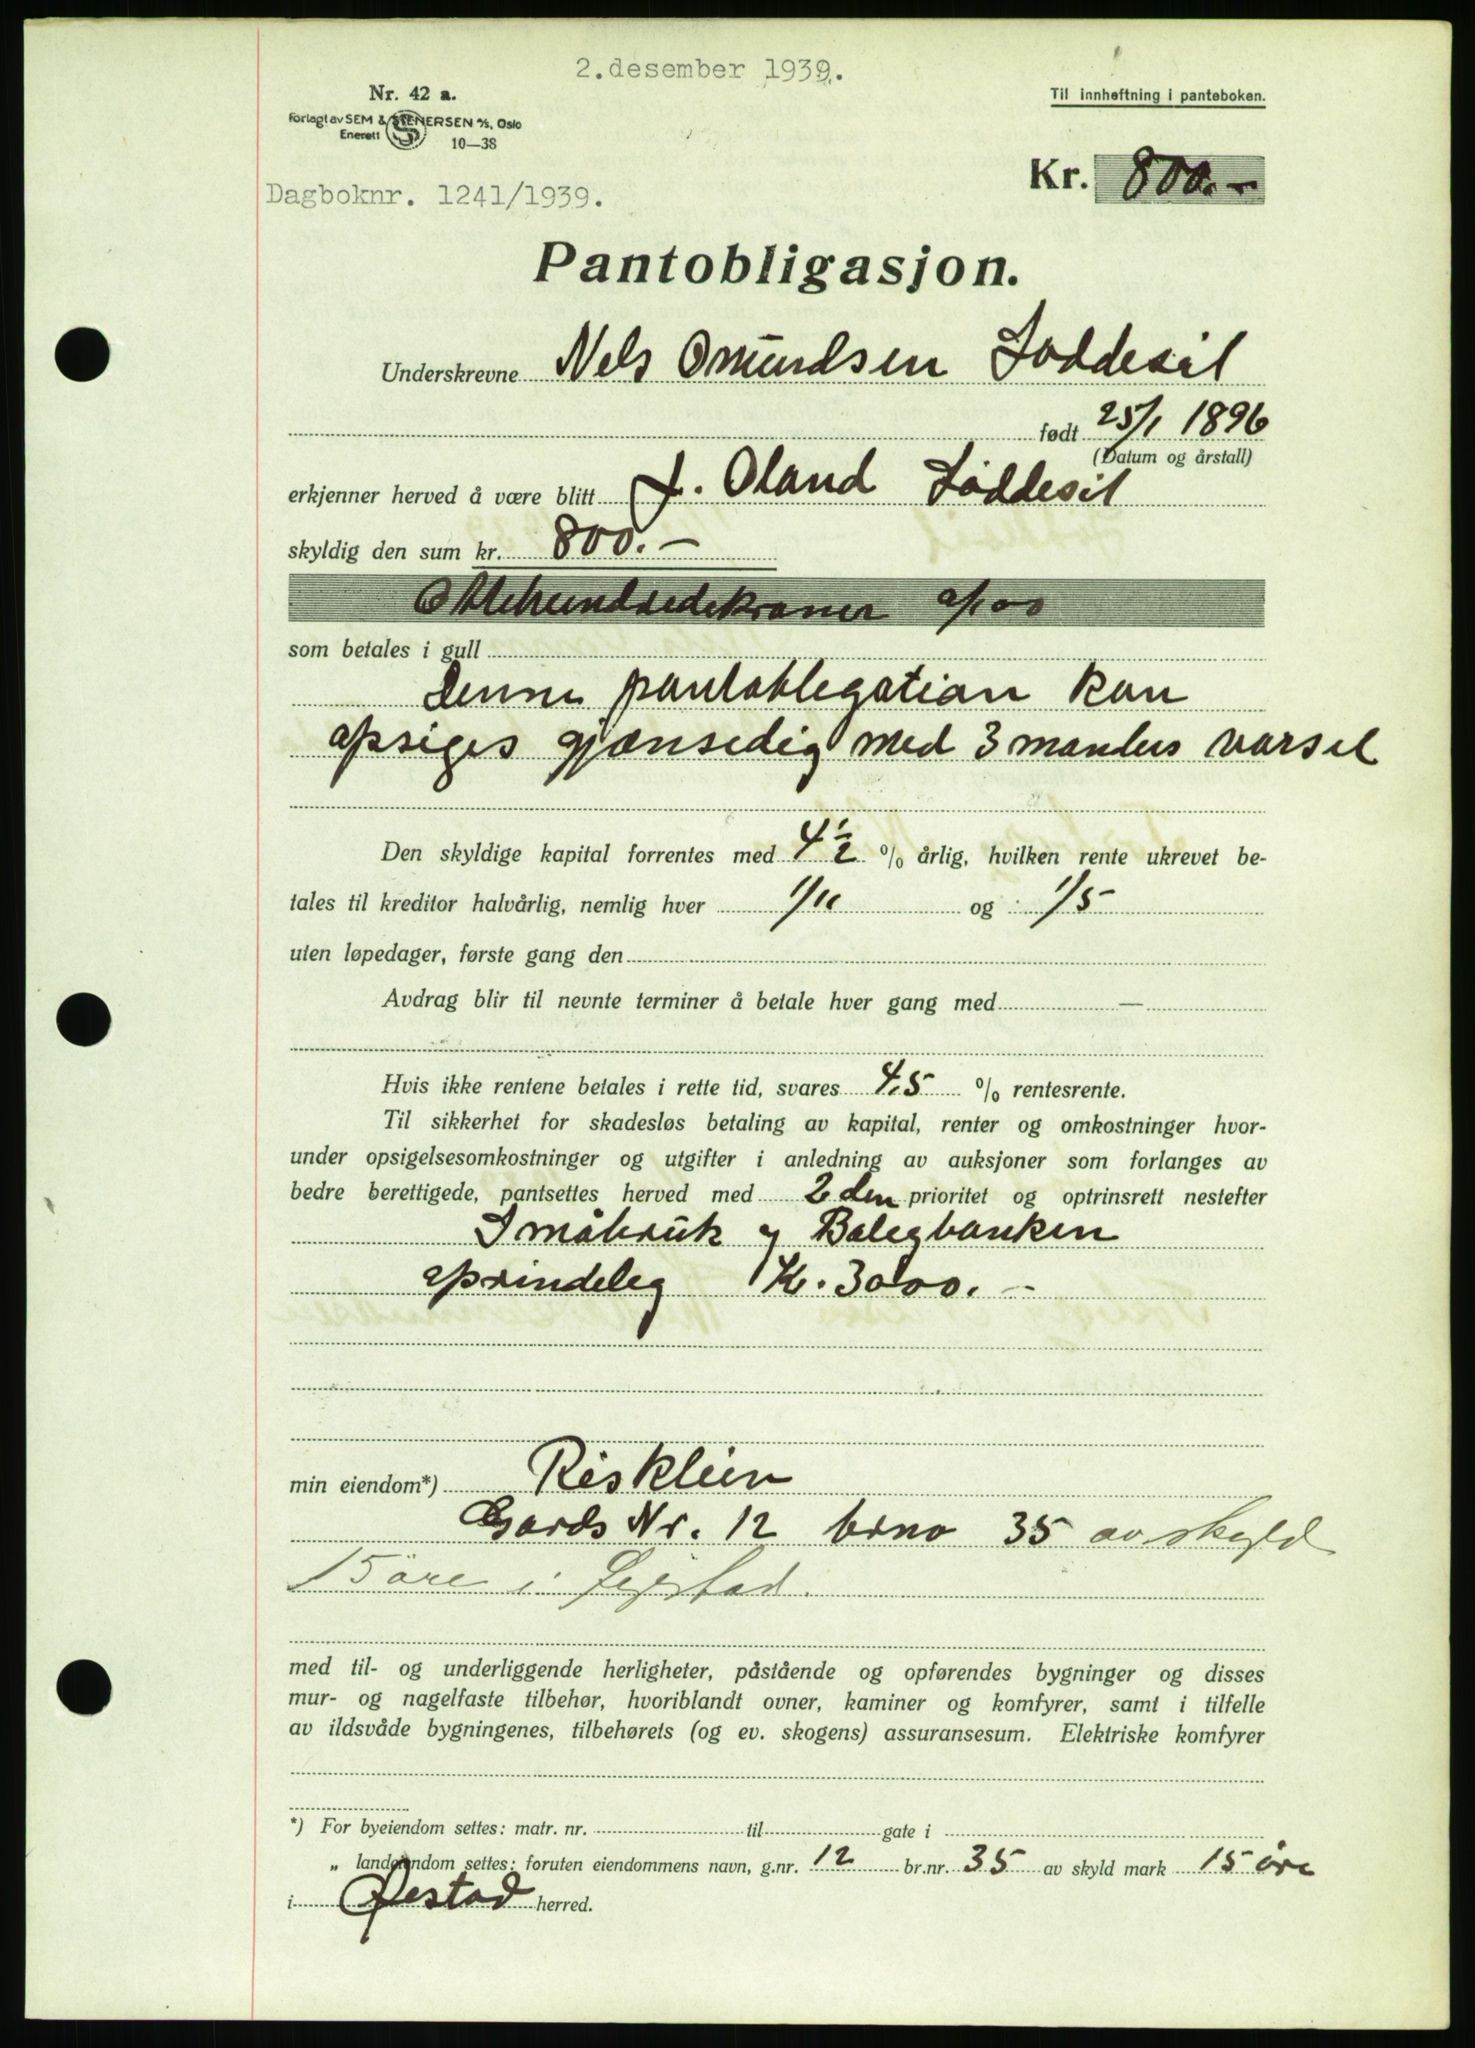 2.desember 1939.
Nr. 42 a.
Forlagt av SEM & STENERSEN A/S, Oslo
Enerett
10—38
Til innheftning i panteboken.
Dagboknr. 1241/1939.
Kr. 800.-
Pantobligasjon.
Underskrevne Nels Omundsen Loddesil
født 25/1 1896
(Datum og årstall)
erkjenner herved å være blitt J. Oland Löddesil
skyldig den sum kr. 800.-
Ottehundredekroner 0/00
som betales i gull
Denne pantoblegation kan
opsiges gjænsedig med 3 manters varsel
Den skyldige kapital forrentes med 4 1/2 % årlig, hvilken rente ukrevet be-
tales til kreditor halvårlig, nemlig hver 1/11 og 1/5
uten løpedager, første gang den
Avdrag blir til nevnte terminer å betale hver gang med —
Hvis ikke rentene betales i rette tid, svares 4.5 % rentesrente.
Til sikkerhet for skadesløs betaling av kapital, renter og omkostninger hvor-
under opsigelsesomkostninger og utgifter i anledning av auksjoner som forlanges av
bedre berettigede, pantsettes herved med 2den prioritet og optrinsrett nestefter
Småbruk og Bolegbanken
oprindeleg Kr. 3000.-
min eiendom*) Risklein
Gards Nr. 12 brno 35 av skyld
15 øre i Øyestad.
med til- og underliggende herligheter, påstående og opførendes bygninger og disses
mur- og nagelfaste tilbehør, hvoriblandt ovner, kaminer og komfyrer, samt i tilfelle
av ildsvåde bygningenes, tilbehørets (og ev. skogens) assuransesum. Elektriske komfyrer
*) For byeiendom settes: matr. nr. til gate i
„ landeiendom settes: foruten eiendommens navn, g.nr. 12 br.nr. 35 av skyld mark 15 öre
i Øestad herred.